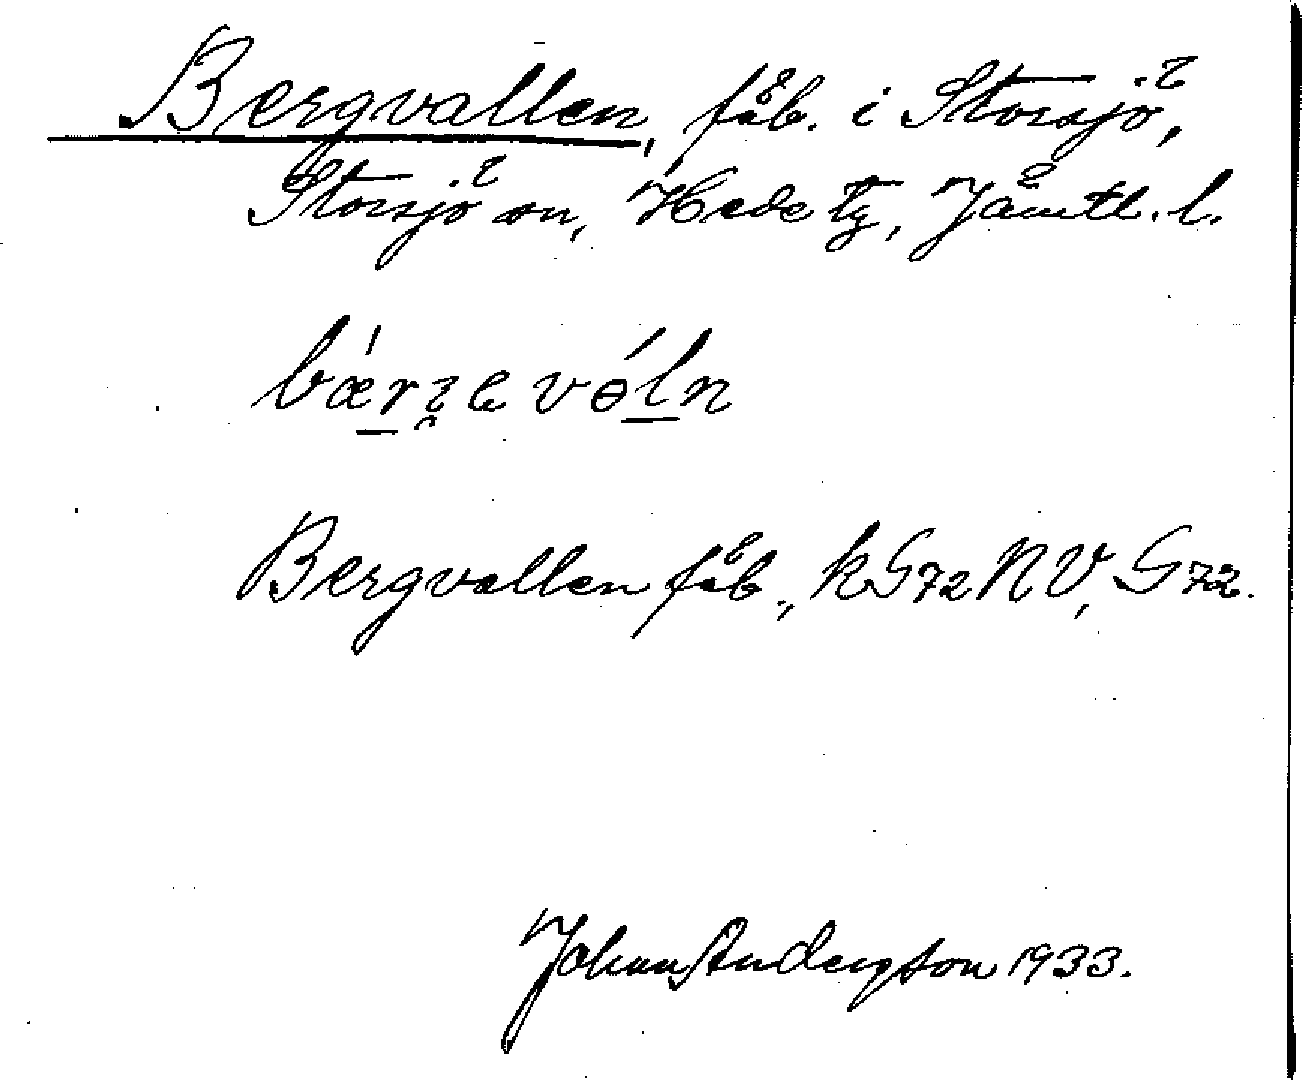 Bergvallen, fäb. i Storsjö,
Storsjö sn, Hede tg, Jämtl. l.
Bergvallen fäb., kG72NV, G72.
Johan Anderson 1933.